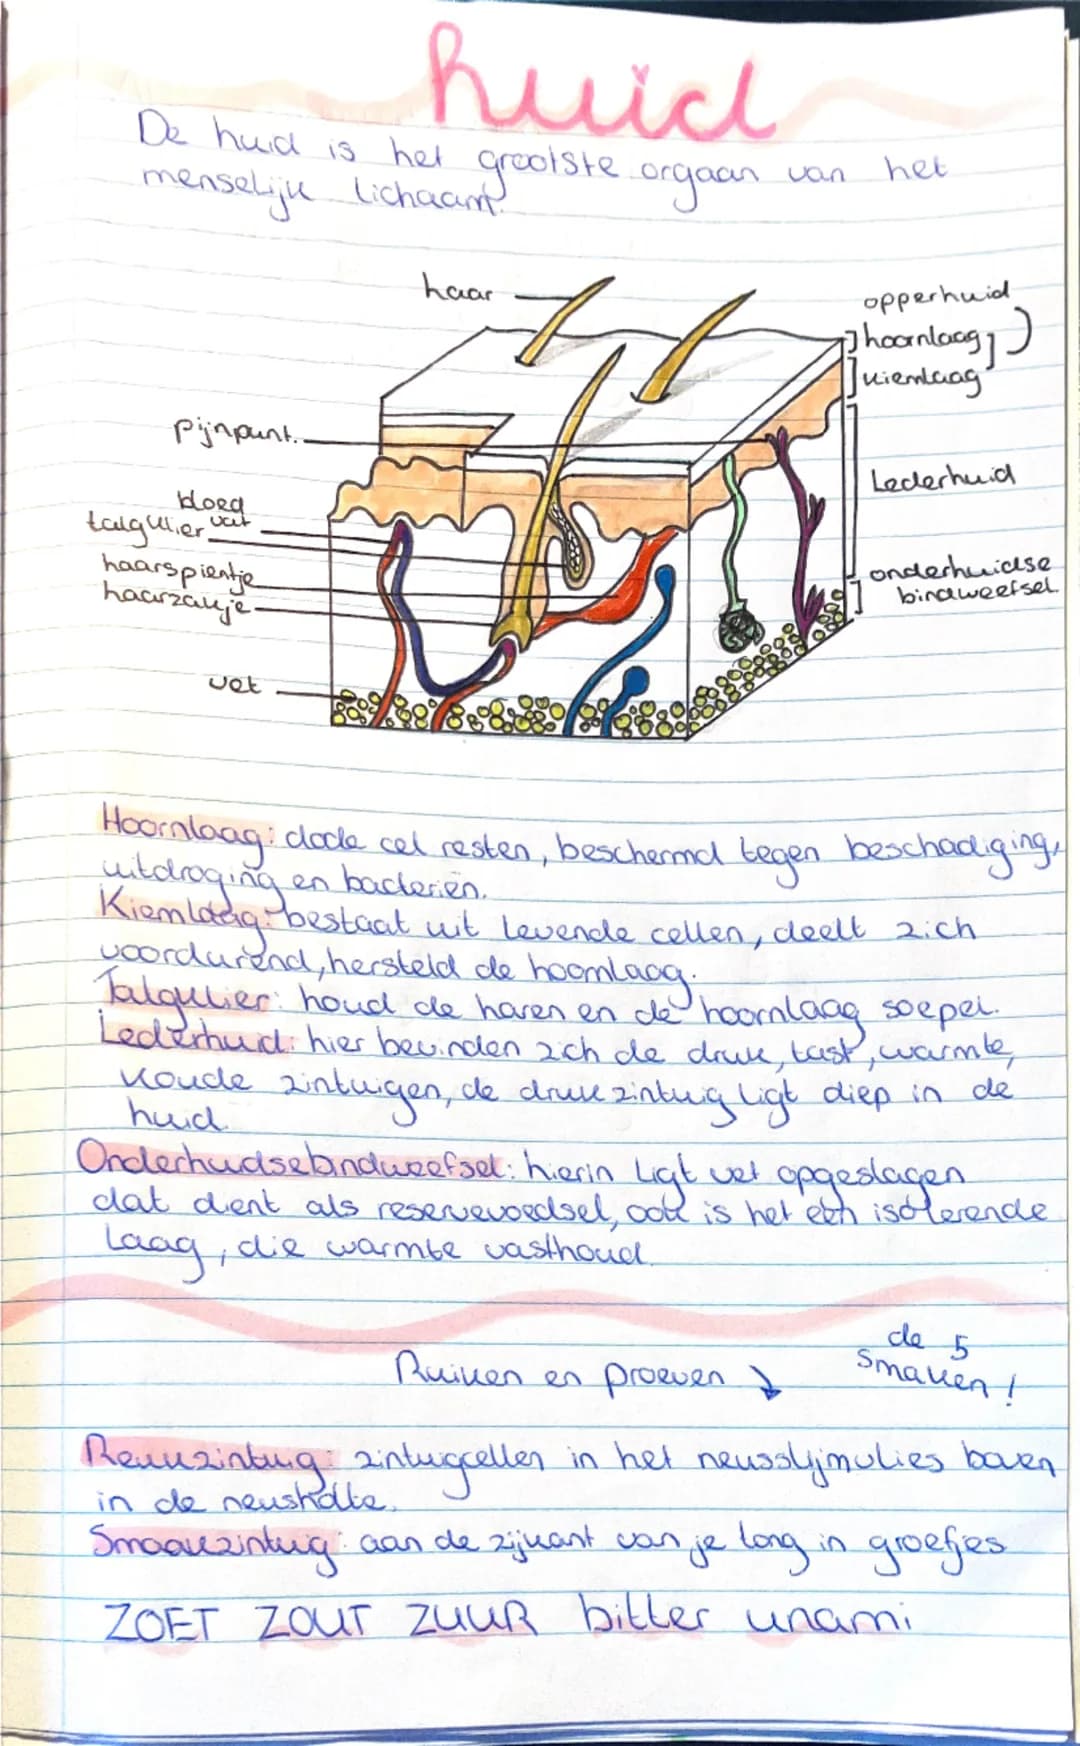 huid
De huid is het grootste orgaan van het
menselijk lichaam.
haar
opperhuid
hoornlaag
kiemlaag
pijnpunt.
Lederhuid
bloed
vat
talgklier
haarspiertje
haarzakje
onderhuidse
bindweefsel
vet
Hoornlaag: dode cel resten, beschermd tegen beschadiging,
uitdroging en bacteriën.
Kiemlaag: bestaat uit levende cellen, deelt zich
voordurend, hersteld de hoornlaag.
Talgklier: houd de haren en de hoornlaag soepel.
Lederhuid: hier bevinden zich de druk, tast, warmte,
koude zintuigen, de druk zintuig ligt diep in de
huid.
Onderhuidsebindweefsel: hierin ligt vet opgeslagen
dat dient als reservevoedsel, ook is het een isolerende
laag, die warmte vasthoud.
Ruiken en proeven
de 5
smaken!
Reukzintuig: zintuigcellen in het neusslijmvlies boven
in de neusholte.
Smaakzintuig: aan de zijkant van je tong in groefjes
ZOET ZOUT ZUUR bitter unami